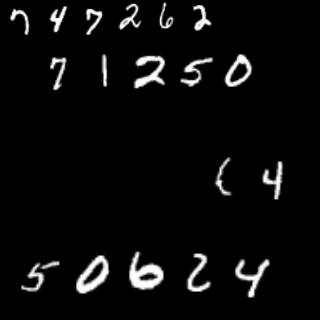 747262
71250
4
50624